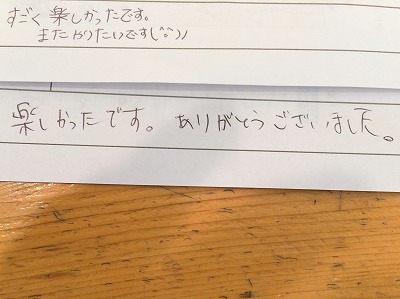 すごく楽しかったです。
またやりたいです(^^)ノノ
楽しかったです。ありがとうございました。